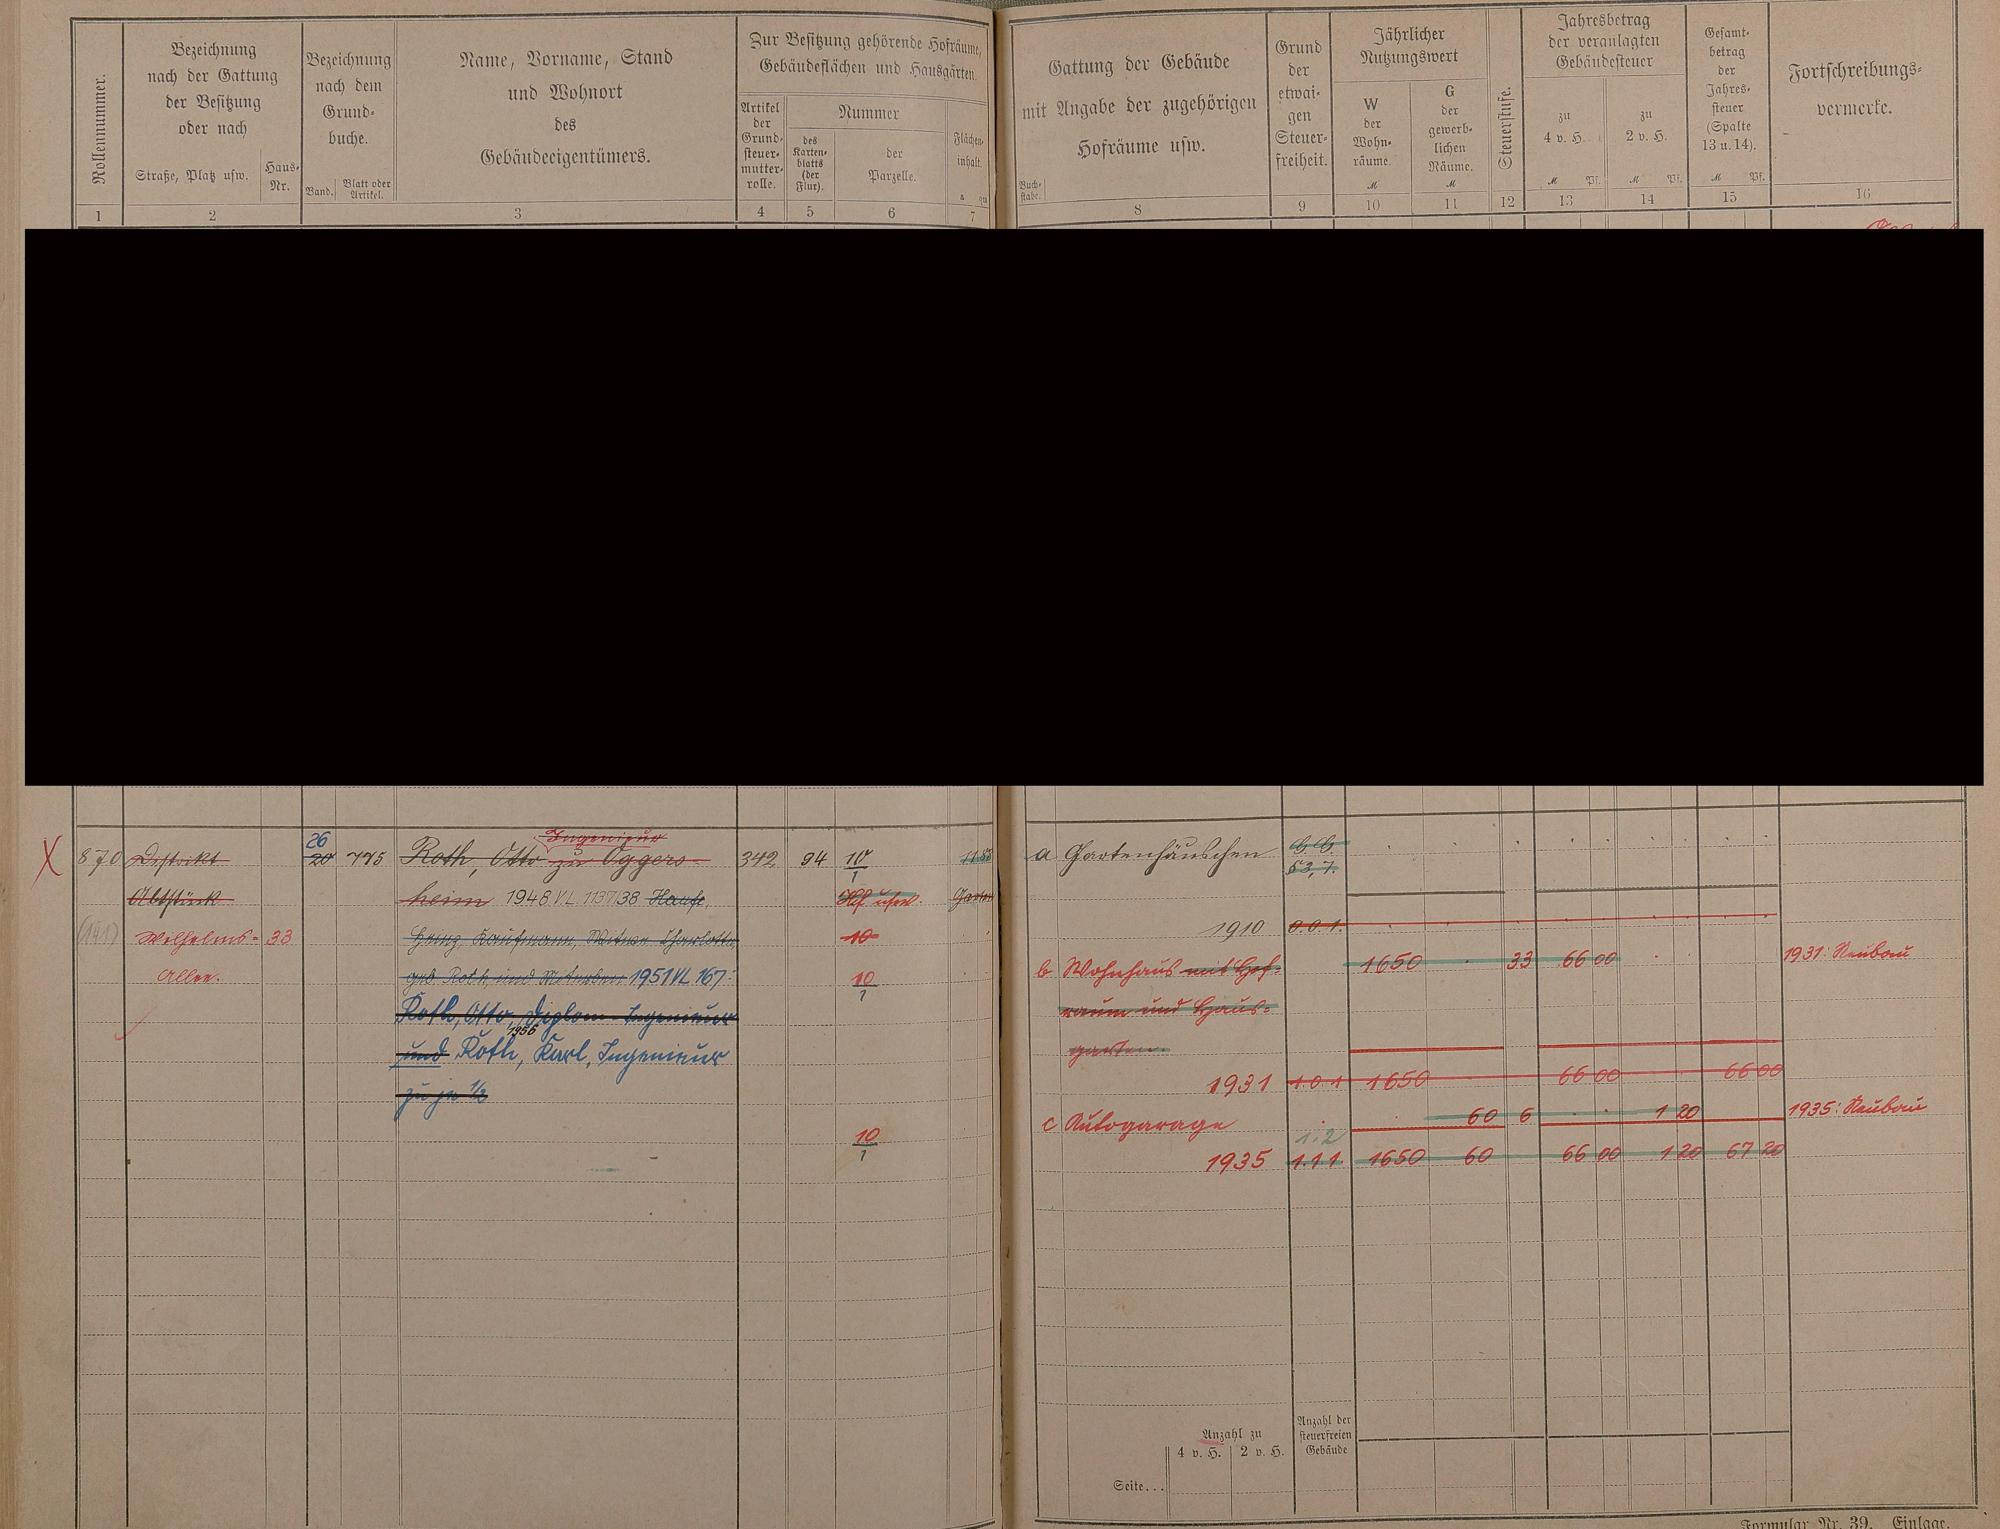 Rollennummer.
Bezeichnung
nach der Gattung
der Besitzung
oder nach
Straße, Platz usw.
Haus-
Nr.
Bezeichnung
nach dem
Grund-
buche.
Band.
Blatt oder
Artikel.
Name, Vorname, Stand
und Wohnort
des
Gebäudeeigentümers.
Zur Besitzung gehörende Hofräume,
Gebäudeflächen und Hausgärten.
Artikel
der
Grund-
steuer-
mutter-
rolle.
Nummer
des
Karten-
blatts
(der
Flur).
der
Parzelle.
Flächen-
inhalt.
a qm
1 2 3 4 5 6 7
Buch-
stabe.
Gattung der Gebäude
mit Angabe der zugehörigen
Hofräume usw.
Grund
der
etwai-
gen
Steuer-
freiheit.
Jährlicher
Nutzungswert
W
der
Wohn-
räume.
M
G
der
gewerb-
lichen
Räume.
M
Steuerstufe.
Jahresbetrag
der veranlagten
Gebäudesteuer
zu
4 v. H.
M Pf.
zu
2 v. H.
M Pf.
Gesamt-
betrag
der
Jahres-
steuer
(Spalte
13 u. 14).
M Pf.
Fortschreibungs-
vermerke.
8 9 10 11 12 13 14 15 16
26
Ingenieur
870 Distrikt 20 775 Roth, Otto zu Oggers- 342 94 10/1
Abtstück heim 1948 VL 1137/38 Hf. usw. Garten
Wilhelms- 33 Heinz, Kaufmann, Witwe Charlotte 10
Allee. geb. Roth und 1951 VL 167: 10/1
Roth, Otto, Diplom-Ingenieur
1956
und Roth, Karl, Ingenieur
zu je 1/2
10/1
a Gartenhäuschen
§ 3,7.
1910 0.0.1.
b Wohnhaus mit Hof- 1650 33 66 00 1931: Neubau
raum und Haus-
garten.
1931 1.0.1 1650 66 00 66 00
c Autogarage 60 6 1 20 1935: Neubau
1.2
1935 1.1.1 1650 60 66 00 1 20 67 20
Anzahl zu
4 v. H. 2 v. H.
Anzahl der
steuerfreien
Gebäude
Seite...
Formular Nr. 39. Einlage.